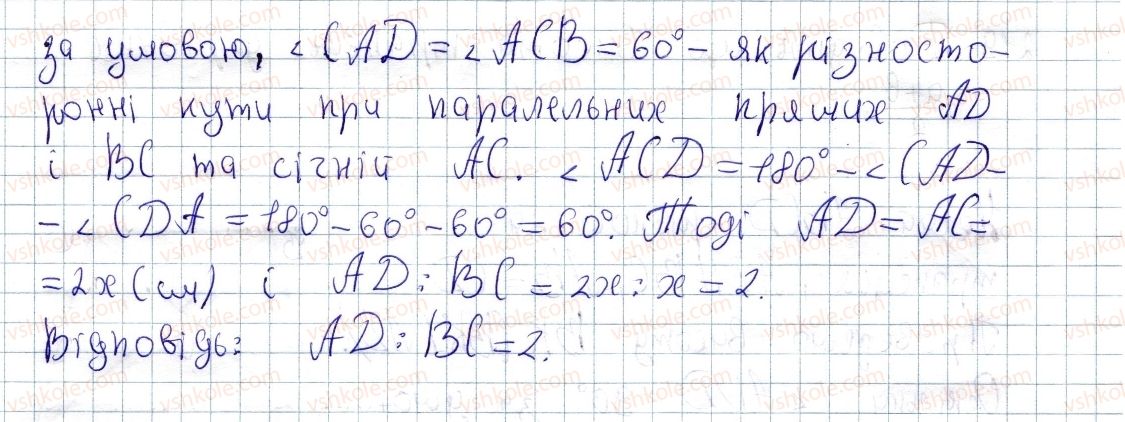 за умовою, ∠CAD = ∠ACB = 60° – як різносто-
ронні кути при паралельних прямих AD
і BC та січній AC. ∠ACD = 180° – ∠CAD –
– ∠CDA = 180° – 60° – 60° = 60°. Тоді AD = AC =
= 2x (см) і AD : BC = 2x : x = 2.
Відповідь: AD : BC = 2.